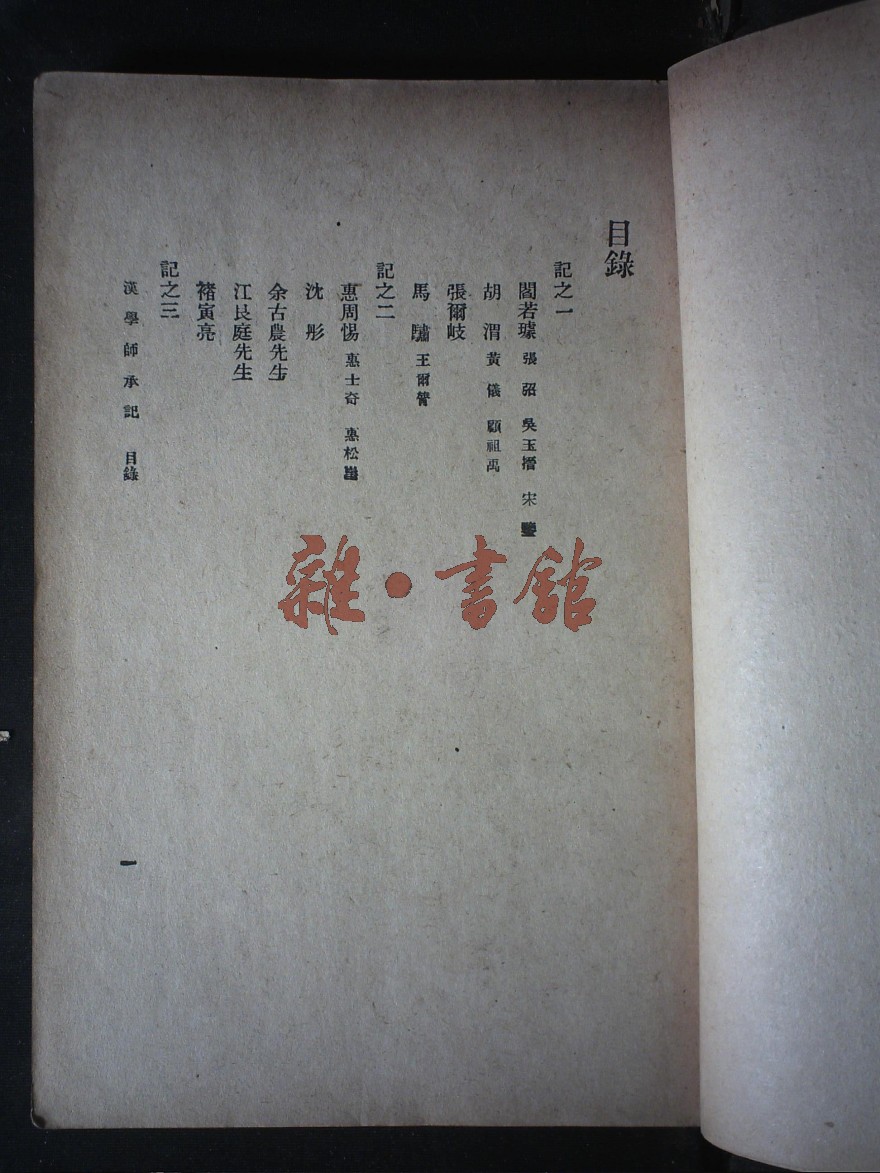 目錄
記之一
閻若璩 張弨 吳玉搢 宋鑒
胡渭 黃儀 顧祖禹
張爾岐
馬驌 王爾膂
記之二
惠周惕 惠士奇 惠松崖
沈彤
余古農先生
江艮庭先生
褚寅亮
記之三
漢學師承記 目錄
一
雜·書館